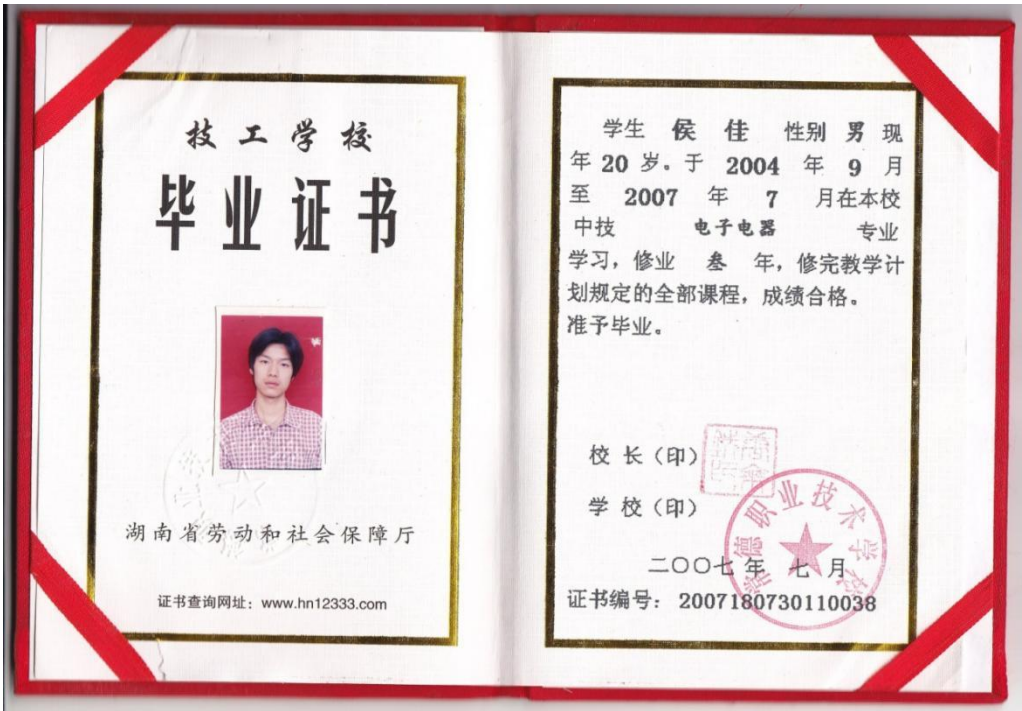 技工学校
毕业证书
湖南省劳动和社会保障厅
证书查询网址：www.hn12333.com
学生 侯佳 性别 男 现
年 20 岁。于 2004 年 9 月
至 2007 年 7 月在本校
中技 电子电器 专业
学习，修业 叁 年，修完教学计
划规定的全部课程，成绩合格。
准予毕业。
校长（印）
学校（印）
常德职业技术学校
二〇〇七年 七月
证书编号：2007180730110038